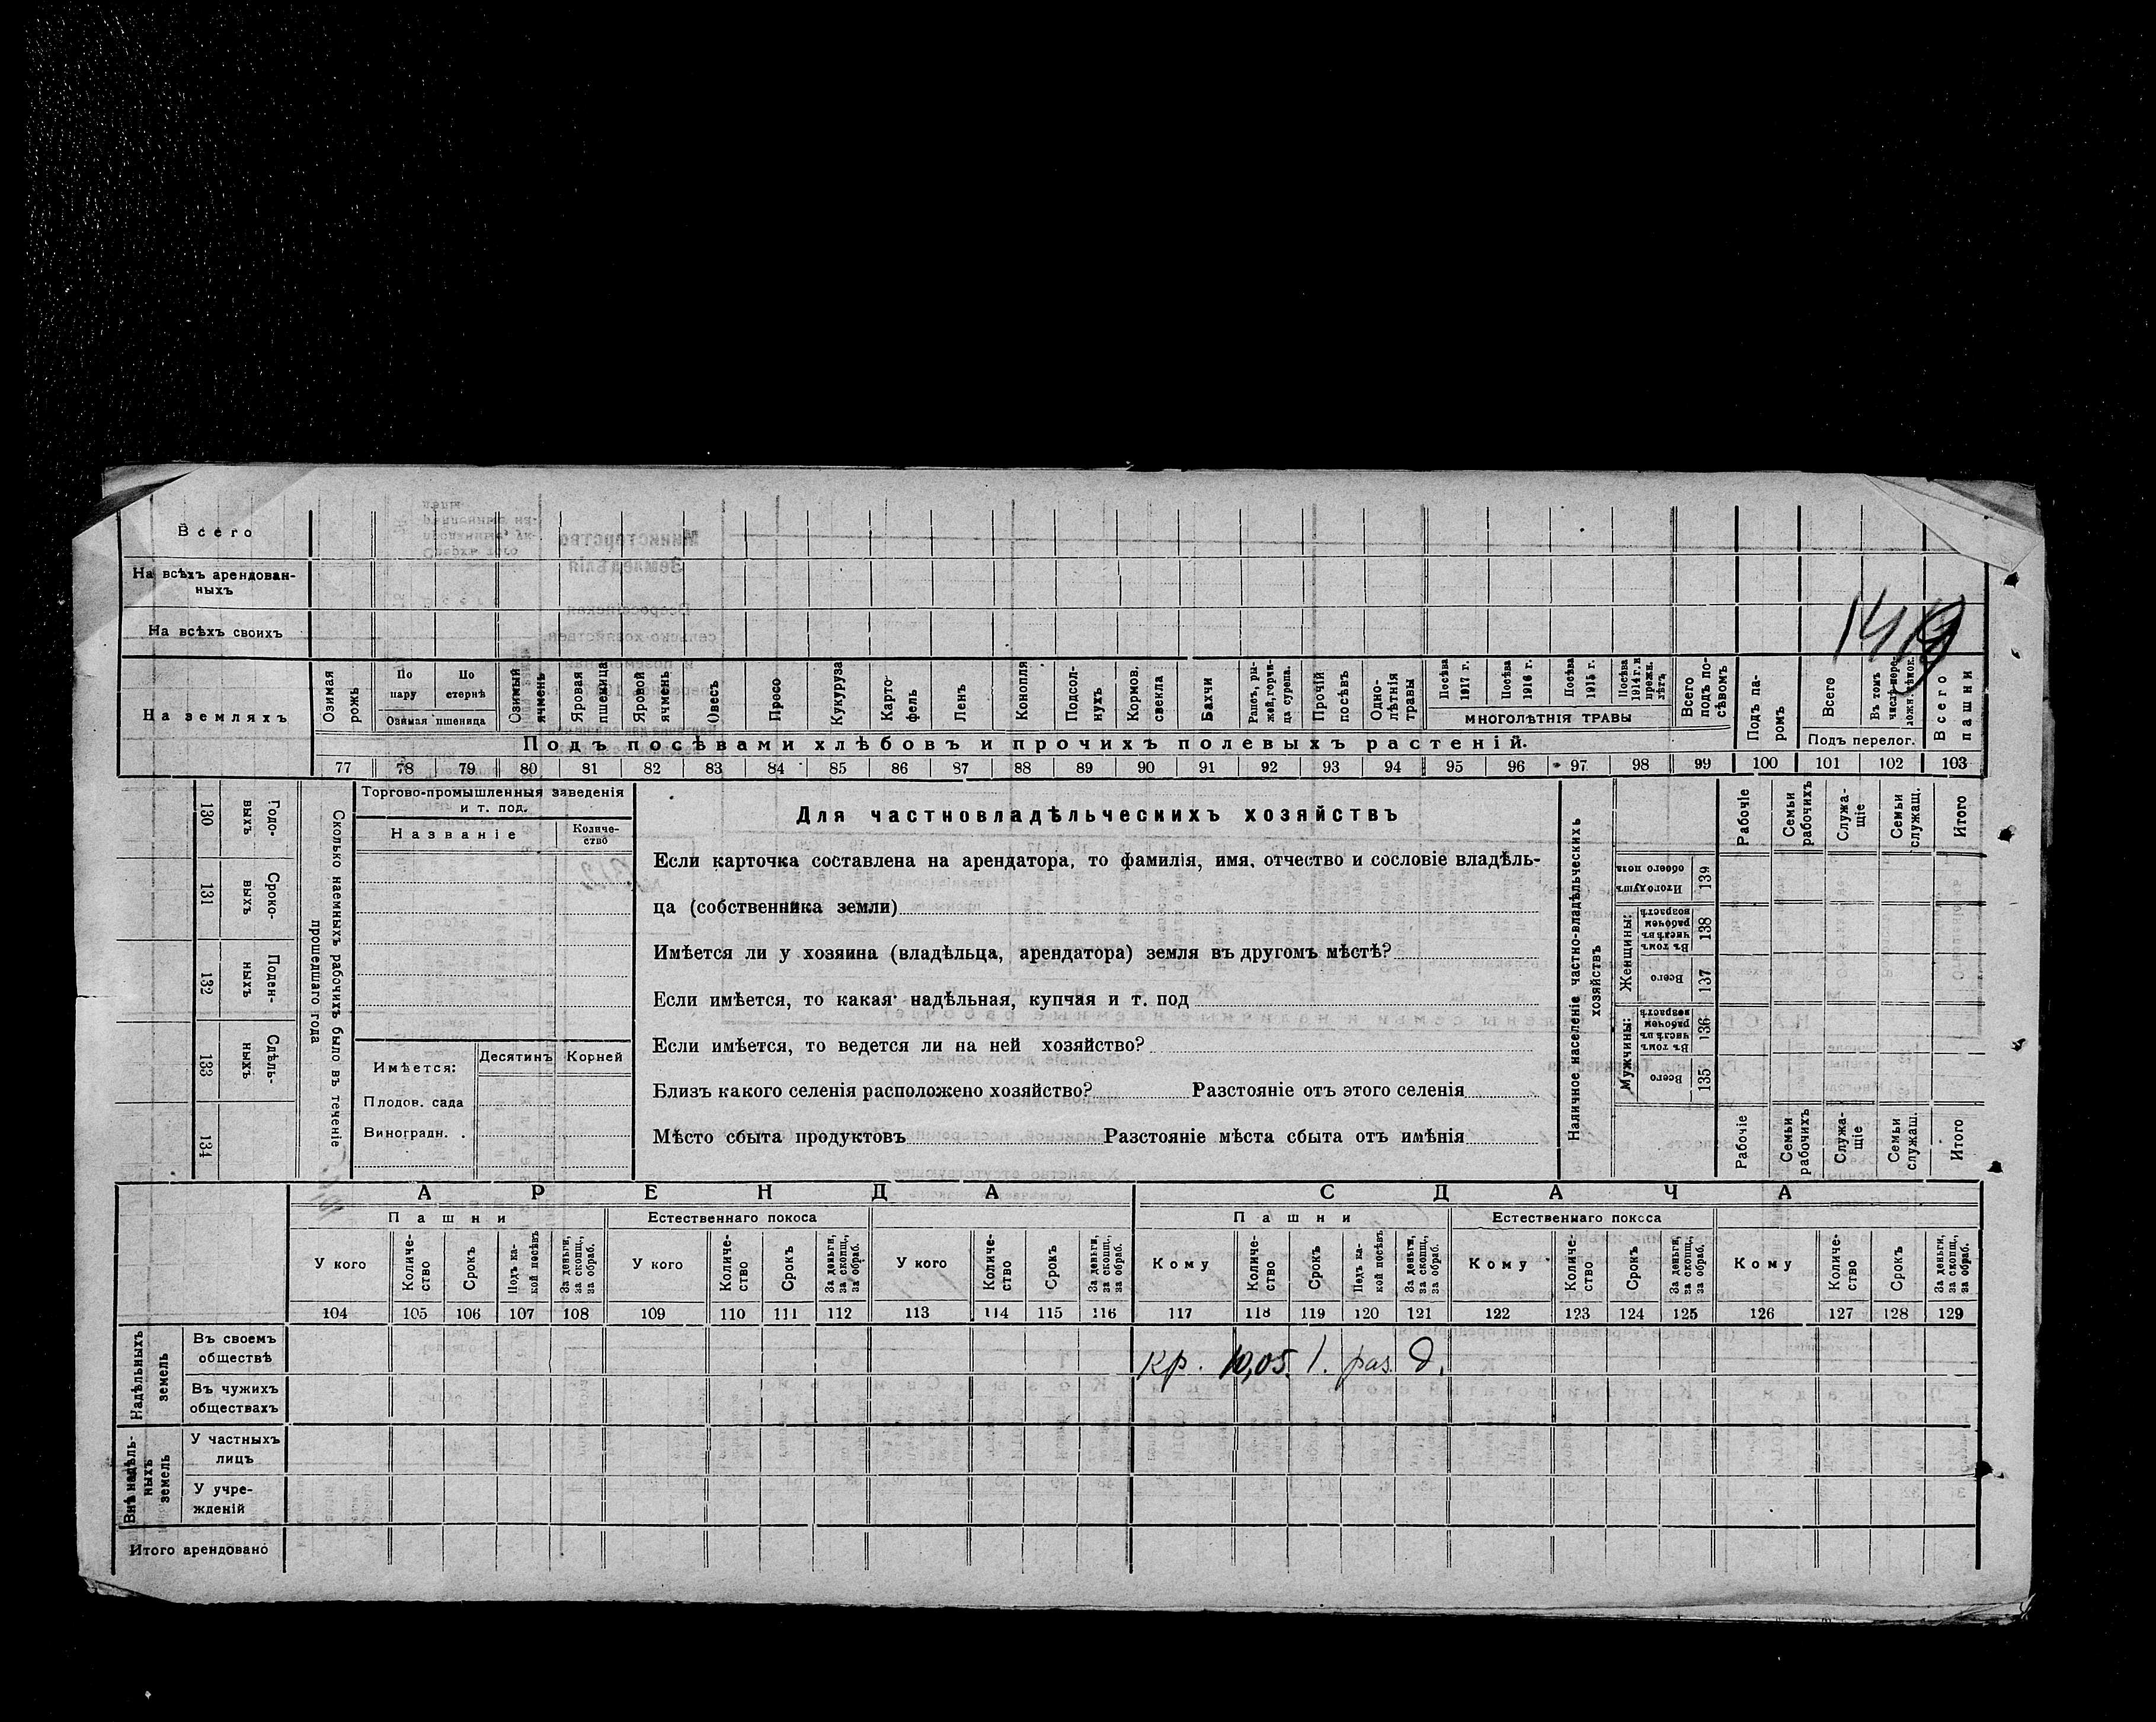 Всего
На всѣхъ арендован-
ныхъ
На всѣхъ своихъ
1419
На земляхъ
Озимая рожь
По пару
По стернѣ
Озимая пшеница
Озимый ячмень
Яровая пшеница
Яровой ячмень
Овесъ
Просо
Кукуруза
Карто-
фель
Ленъ
Конопля
Подсол-
нухъ
Кормов. свекла
Бахчи
Рапсъ, ры-
жей, горчи-
ца сурепа.
Прочій посѣвъ
Одно-
лѣтнія травы
Посѣва 1917 г.
Посѣва 1916 г.
Посѣва 1915 г.
Посѣва 1914 г. и прежн. лѣтъ
МНОГОЛѢТНІЯ ТРАВЫ
Всего подъ по-
сѣвомъ
Подъ па-
ромъ
Всего
Въ томъ числѣ пере-
ложн. сѣнок.
Подъ перелог.
Всего пашни
Подъ посѣвами хлѣбовъ и прочихъ полевыхъ растеній.
77 78 79 80 81 82 83 84 85 86 87 88 89 90 91 92 93 94 95 96 97 98 99 100 101 102 103
130 Годо-
выхъ
131 Сроко-
выхъ
132 Поден-
ныхъ
133 Сдѣль-
ныхъ
134
Сколько наемныхъ рабочихъ было въ теченіе
прошедшаго года
Торгово-промышленныя заведенія
и т. под.
Названіе
Количе-
ство
Имѣется:
Десятинъ
Корней
Плодов. сада
Виноградн. .
Для частновладѣльческихъ хозяйствъ
Если карточка составлена на арендатора, то фамилія, имя, отчество и сословіе владѣль-
ца (собственника земли)
Имѣется ли у хозяина (владѣльца, арендатора) земля въ другомъ мѣстѣ?
Если имѣется, то какая: надѣльная, купчая и т. под
Если имѣется, то ведется ли на ней хозяйство?
Близъ какого селенія расположено хозяйство? Разстояніе отъ этого селенія
Мѣсто сбыта продуктовъ Разстояніе мѣста сбыта отъ имѣнія
Наличное населеніе частно-владѣльческихъ
хозяйствъ
Рабочіе
Семьи рабочихъ
Служа-
щіе
Семьи служащ.
Итого
Итого душъ обоего пола 139
Женщины:
Въ томъ числѣ въ рабочемъ возрастѣ 138
Всего 137
Мужчины:
Въ томъ числѣ въ рабочемъ возрастѣ 136
Всего 135
Рабочіе
Семьи рабочихъ
Служа-
щіе
Семьи служащ.
Итого
АРЕНДА
СДАЧА
Пашни
Естественнаго покоса
Пашни
Естественнаго покоса
У кого
Количе-
ство
Срокъ
Подъ ка-
кой посѣвъ
За деньги, за скопщ., за обраб.
У кого
Количе-
ство
Срокъ
За деньги, за скопщ., за обраб.
У кого
Количе-
ство
Срокъ
За деньги, за скопщ., за обраб.
Кому
Количе-
ство
Срокъ
Подъ ка-
кой посѣвъ
За деньги, за скопщ., за обраб.
Кому
Количе-
ство
Срокъ
За деньги, за скопщ., за обраб.
Кому
Количе-
ство
Срокъ
За деньги, за скопщ., за обраб.
104 105 106 107 108 109 110 111 112 113 114 115 116 117 118 119 120 121 122 123 124 125 126 127 128 129
Надѣльныхъ земель
Въ своемъ
обществѣ
кр. 10,05. 1. раз. д.
Въ чужихъ
обществахъ
Внѣ надѣль-
ныхъ земель
У частныхъ
лицъ
У учре-
жденій
Итого арендовано